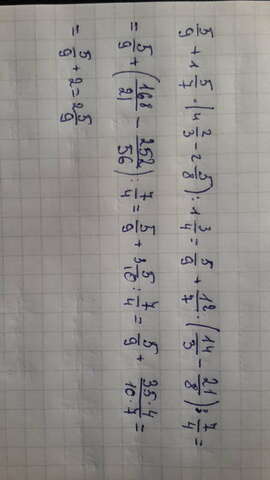 5/9 + 1 5/7 · (4 2/3 - 2 5/8) : 1 3/4 = 5/9 + 12/7 · (14/3 - 21/8) : 7/4 =
= 5/9 + (168/21 - 252/56) : 7/4 = 5/9 + 35/10 : 7/4 = 5/9 + 35·4/10·7 =
= 5/9 + 2 = 2 5/9